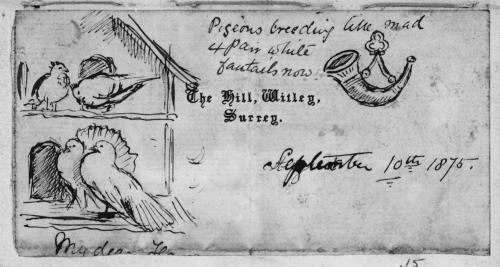 Pigeons breeding like mad
4 pair white
fantails now
The Hill, Witley,
Surrey.
September 10th 1875.
My dear
.15